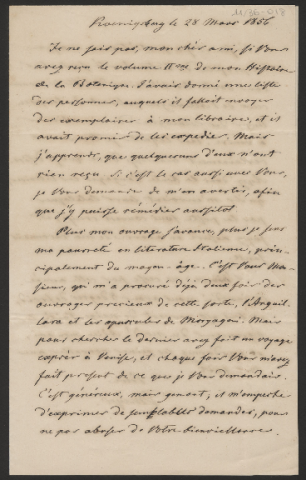 Koenigsberg le 28 Mars 1856
Je ne sais pas, mon cher ami, si Vous
avez reçu le volume II de mon Histoire
de la Botanique. J'avais donné une liste
des personnes, auxquels il fallait envoyer
des exemplaires à mon libraire, et il
avait promis de les expedier. Mais
j'apprends, que quelques uns d'eux n'ont
rien reçu. Si c'est le cas aussi avec Vous,
je Vous demande de m'en avertir, afin
que j'y puisse rémédier aussitot.
Plus mon ouvrage s'avance, plus je sens
ma pauvreté en literature Italienne, prin-
cipalement du moyen-âge. C'est Vous Mon-
sieur, qui m'a procuré déjà deux fois des
ouvrages precieux de cette sorte, l'Anguil-
lara et les opuscules de Morgagni. Mais
pour chercher le dernier avez fait un voyage
exprès à Venise, et chaque fois Vous m'avez
fait present de ce que je Vous demandais.
C'est généreux, mais genant, et m'empeche
d'exprimer de semblables demandes, pour
ne pas abuser de Votre bienveillance.